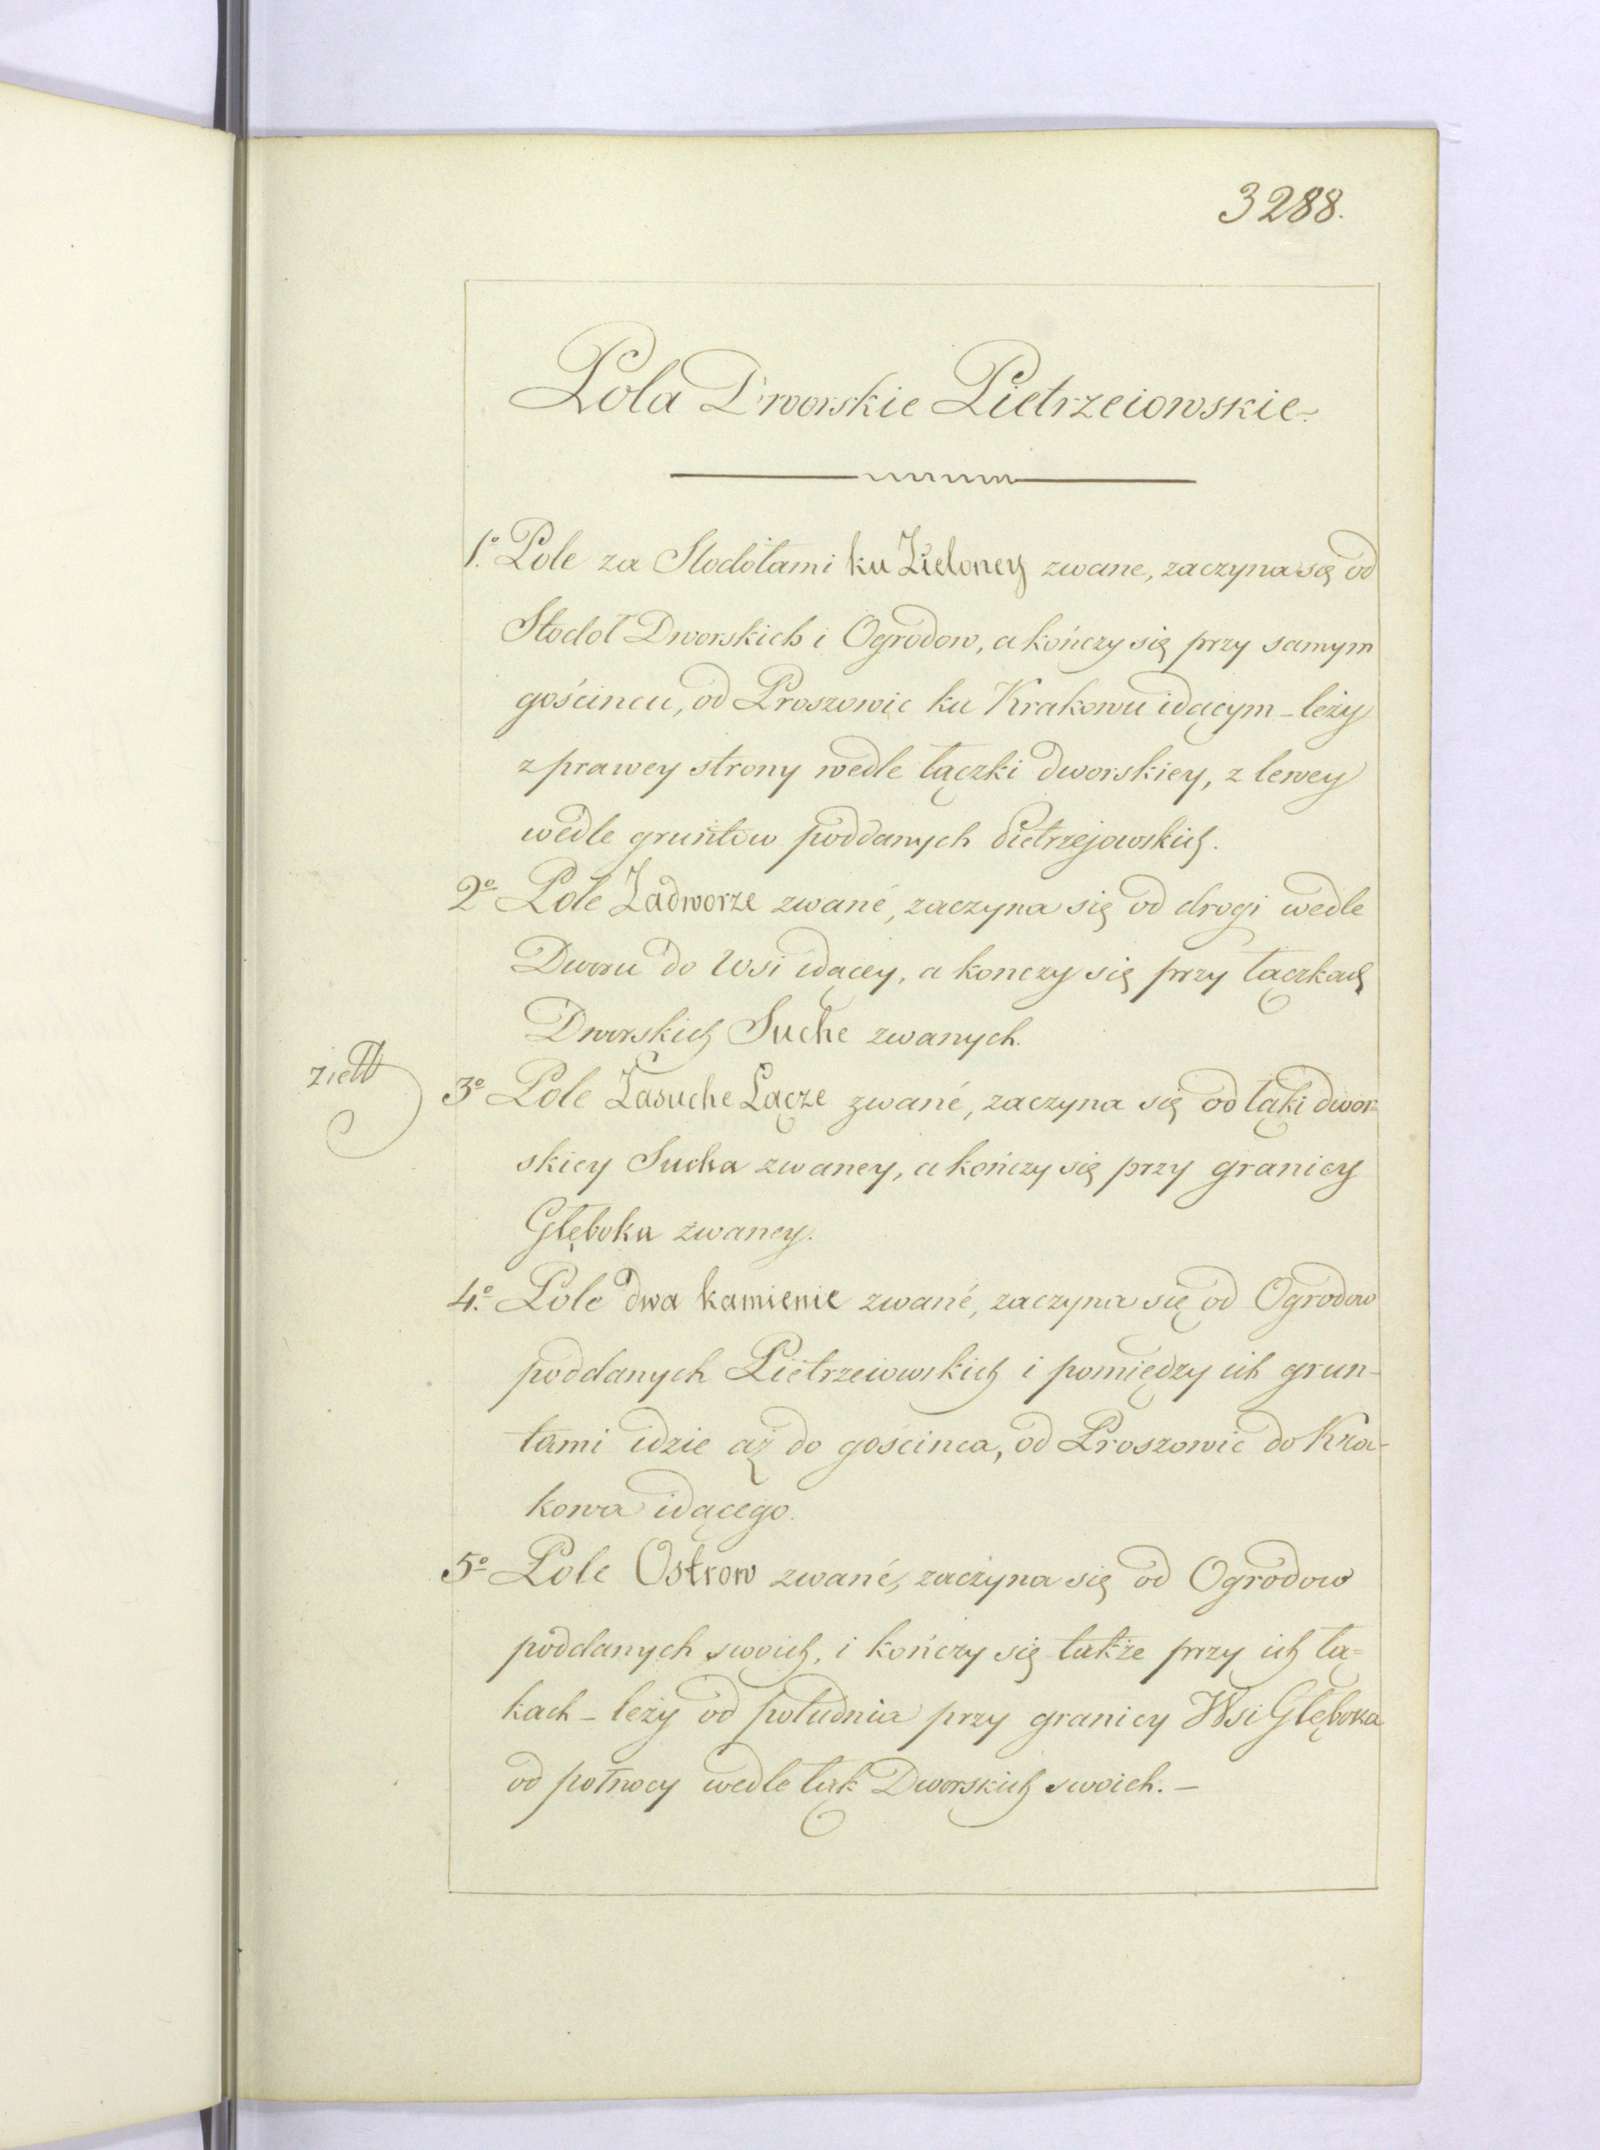 3288.
Pola Dworskie Pietrzeiowskie.
1º. Pole za Stodołami ku Zieloney zwane, zaczyna się od
Stodoł Dworskich i Ogrodow, a kończy się przy samym
gościncu, od Proszowic ku Krakowu idącym – leży
z prawey strony wedle łączki dworskiey, z lewey
wedle gruntow poddanych Pietrzejowskich.
2º Pole Zadworze zwané, zaczyna się od drogi wedle
Dworu do Wsi idącey, a konczy się przy łączkach
Dworskich Suche zwanych.
3º Pole Zasuche Łącze zwané, zaczyna się od łąki dwor-
skiey Sucha zwaney, a kończy się przy granicy
Głęboka zwaney.
4º. Pole dwa kamienie zwané, zaczyna się od Ogrodow
poddanych Pietrzeiowskich i pomiędzy ich grun-
tami idzie aż do goscinca, od Proszowic do Kra-
kowa idącego.
5º Pole Ostrow zwané, zaczyna się od Ogrodow
poddanych swoich, i kończy się także przy ich łą=
kach – leży od południa przy granicy Wsi Głęboka
od połnocy wedle łąk Dworskich swoich. –